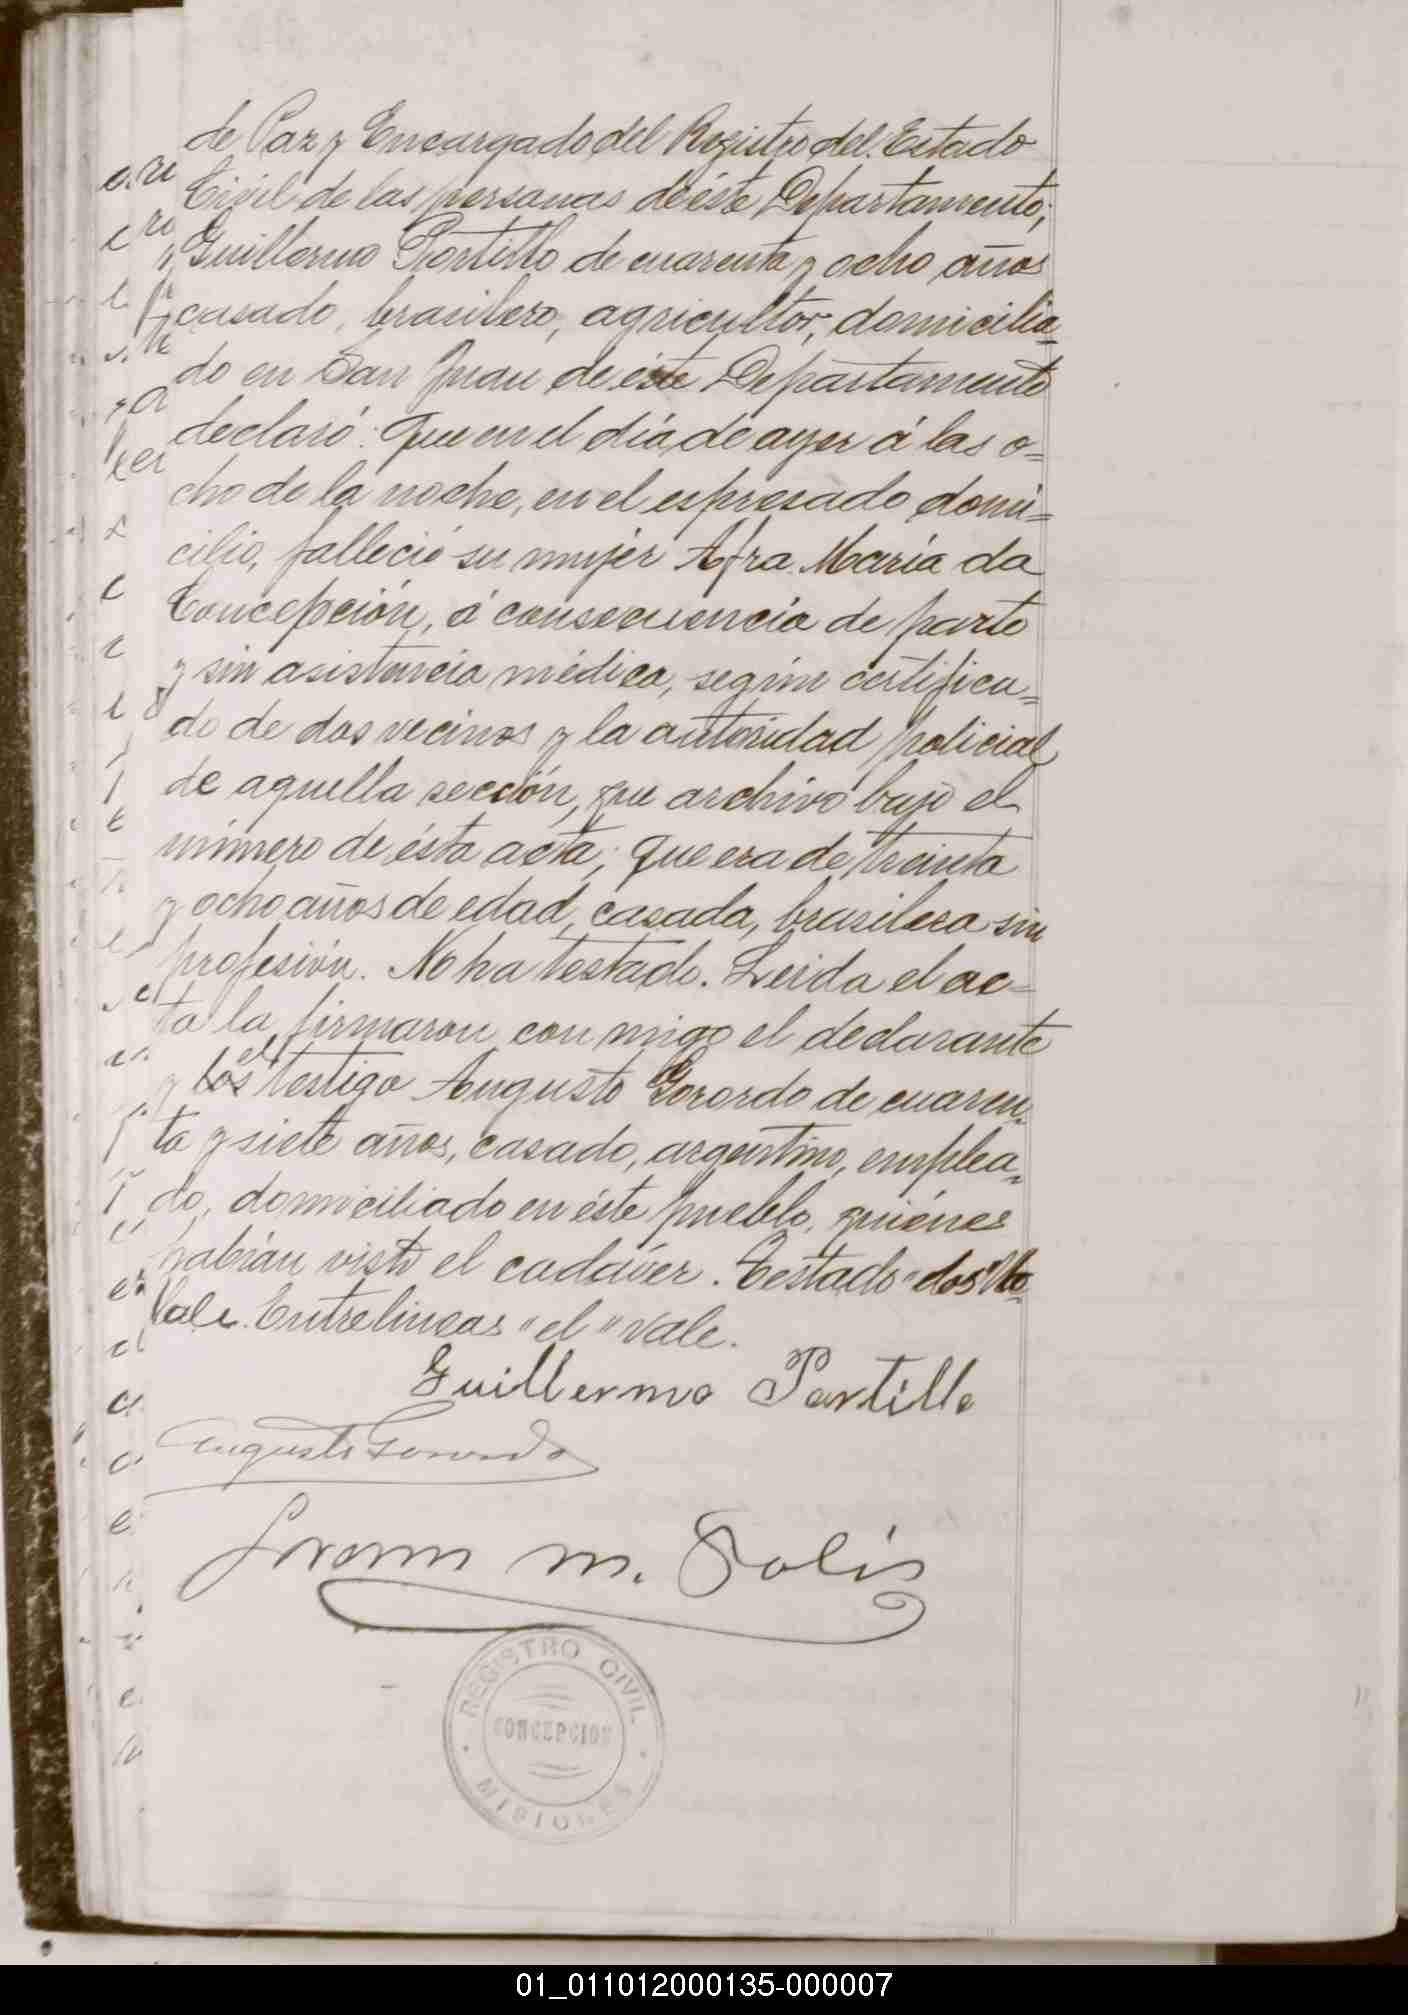 de Paz y Encargado del Registro del Estado
Civil de las personas de éste Departamento;
Guillermo Portillo de cuarenta y ocho años
casado, brasilero, agricultor, domicilia=
do en San Juan de éste Departamento
declaró: Que en el día de ayer á las o=
cho de la noche, en el espresado domi=
cilio, falleció su mujer Afra María da
Concepción, á consecuencia de parto
y sin asistencia médica, según certifica=
do de dos vecinos y la autoridad policial
de aquella sección, que archivo bajo el
número de ésta acta; que era de treinta
y ocho años de edad, casada, brasilera sin
profesión. No ha testado. Leida el ac=
ta la firmaron con migo el declarante
y los el testigo Augusto Gorordo de cuaren=
ta y siete años, casado, argentino, emplea=
do, domiciliado en éste pueblo, quiénes
habían visto el cadáver. Testado "los" No
Vale. Entrelineas "el" vale.
Guillermo Portillo
Augusto Gorordo
M. Solís
REGISTRO CIVIL
CONCEPCION
MISIONES
01_011012000135-000007